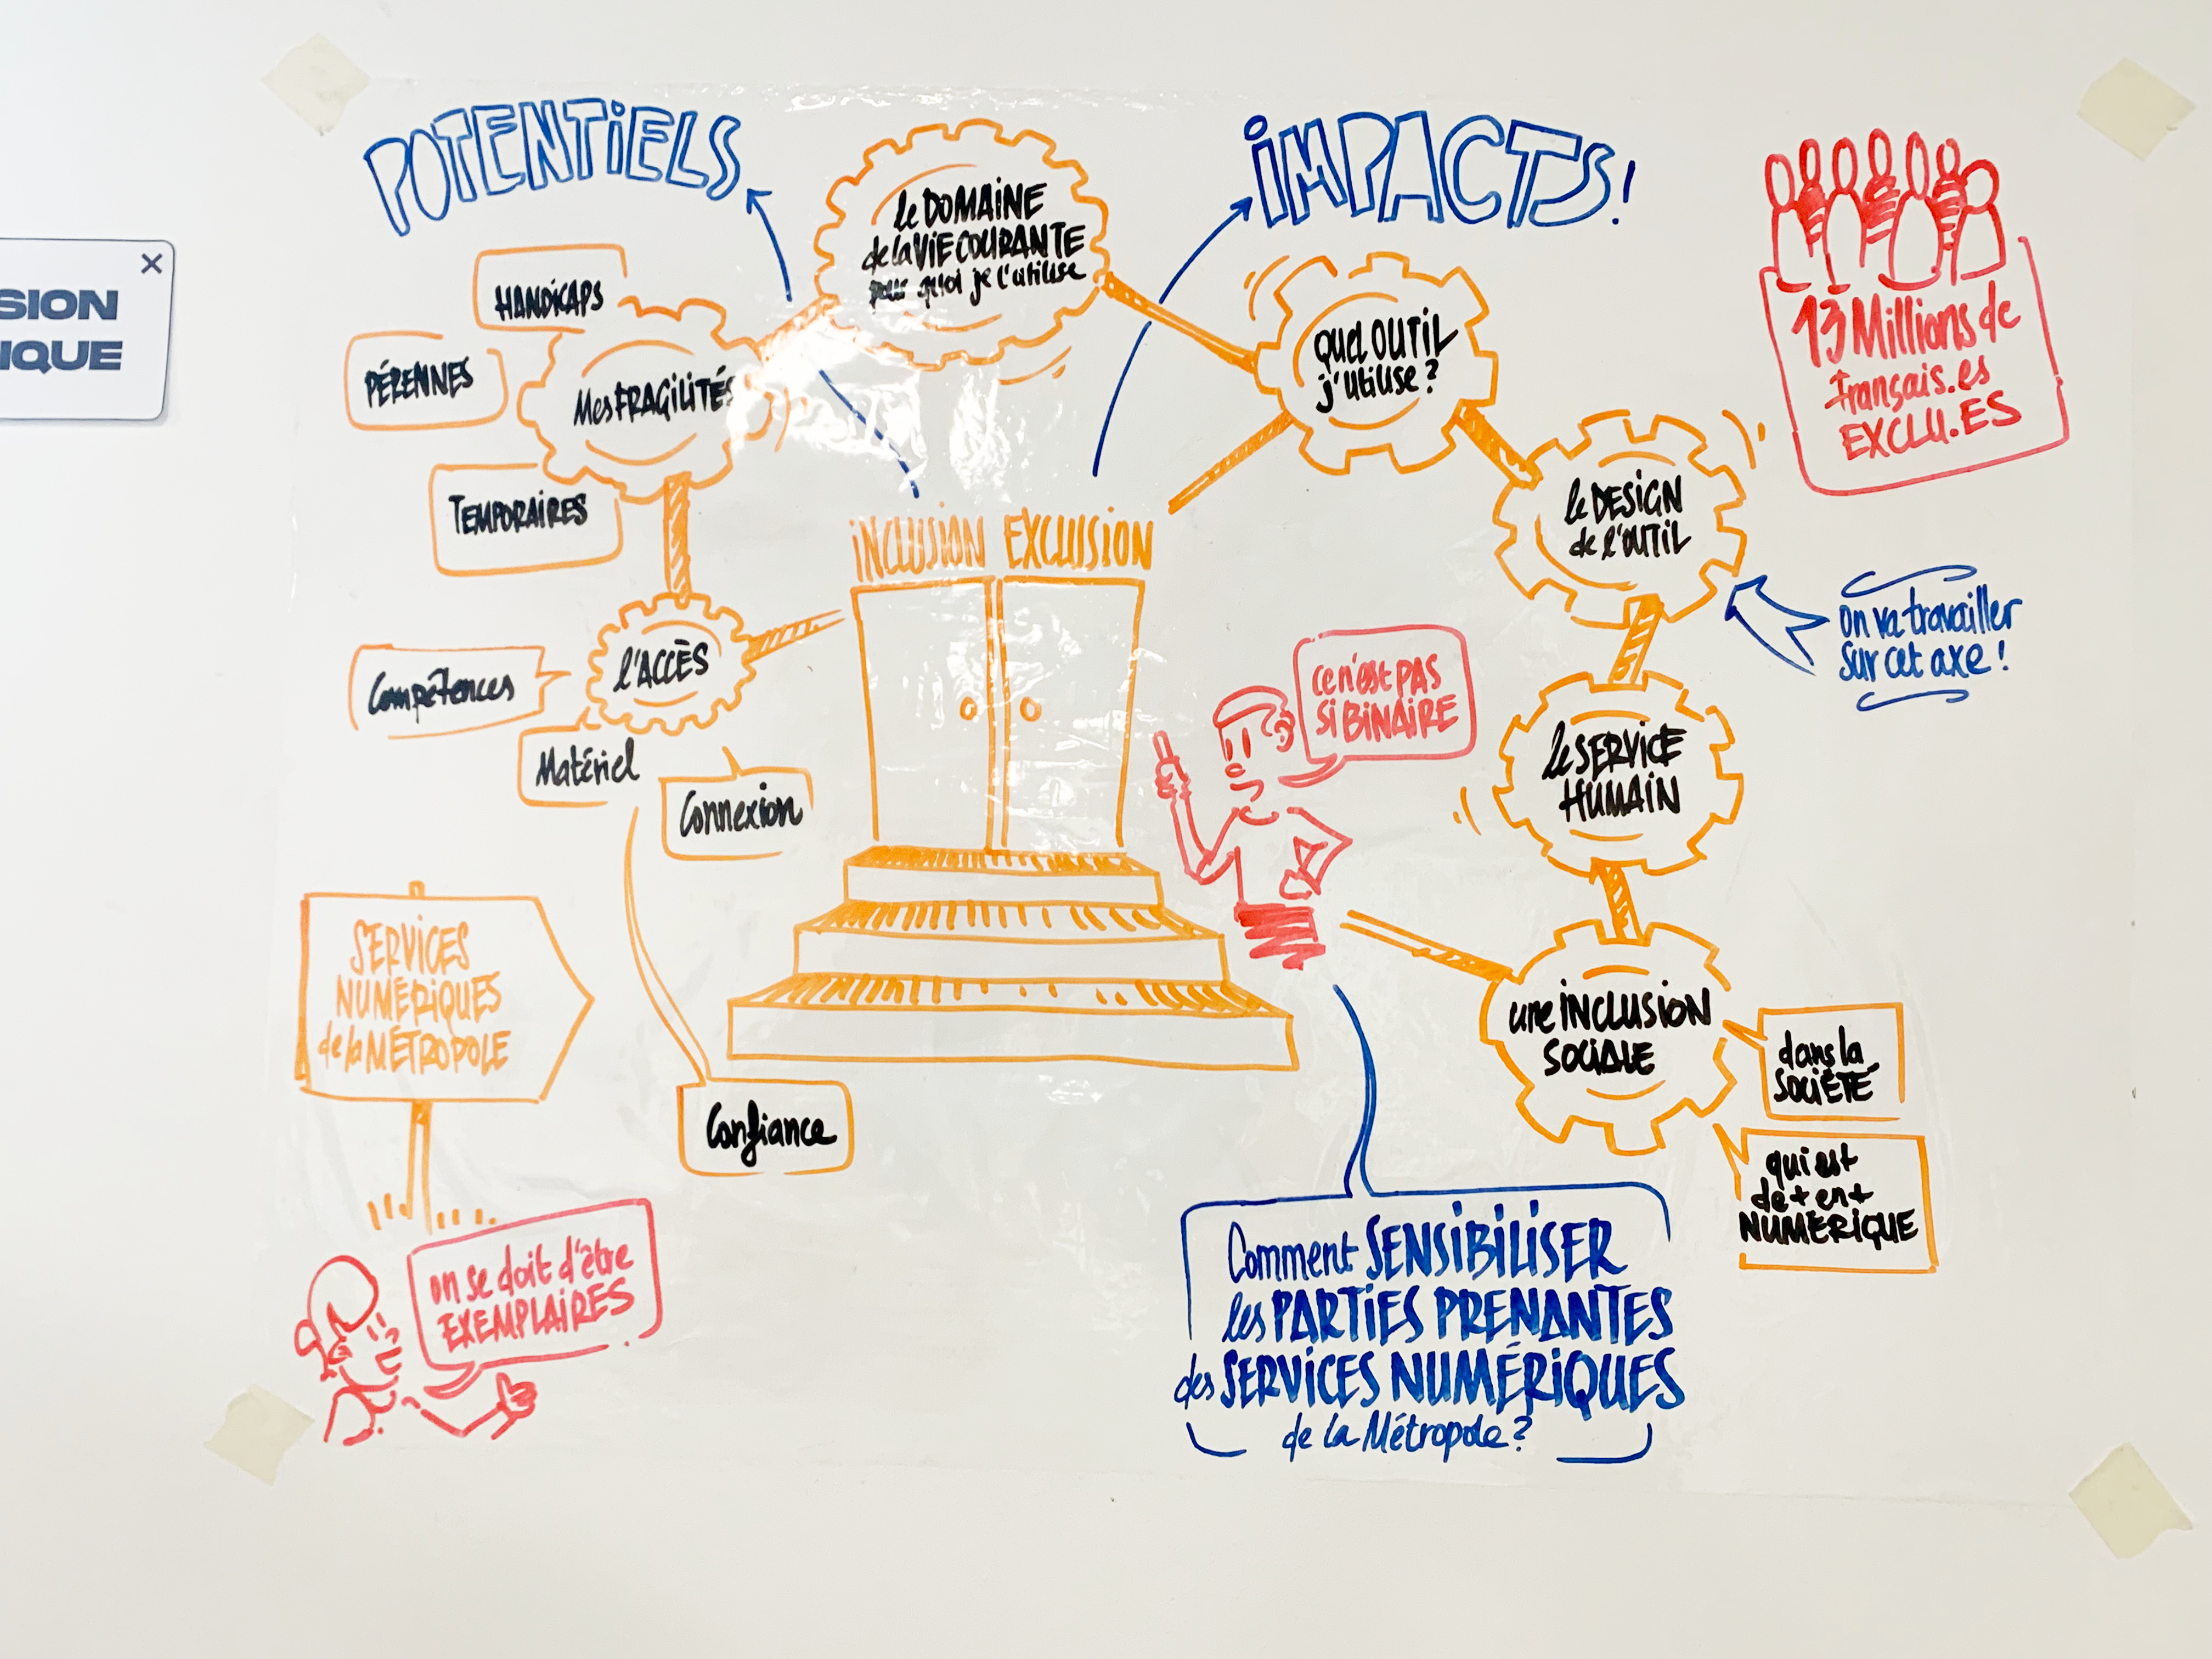 POTENTiELS
iMPACTS!
le DOMAiNE
de la ViE COURANTE
pour quoi je l'utilise
13 Millions de
français.es
EXCLU.ES
SION
IQUE
HANDiCAPS
PÉRENNES
Mes FRAGiLiTÉS
TEMPORAiRES
QUEL OUTiL
j'utilise ?
le DESiGN
de l'OUTiL
iNCLUSiON EXCLUSiON
on va travailler
sur cet axe !
l'ACCÈS
Compétences
Matériel
Connexion
ce n'est PAS
Si BiNAiRE
le SERViCE
HUMAiN
SERViCES
NUMÉRiQUES
de la MÉTROPOLE
Confiance
une iNCLUSiON
SOCiALE
dans la
SOCiÉTÉ
qui est
de + en +
NUMÉRiQUE
on se doit d'être
EXEMPLAiRES
Comment SENSiBiLiSER
les PARTiES PRENANTES
des SERViCES NUMÉRiQUES
de la Métropole ?